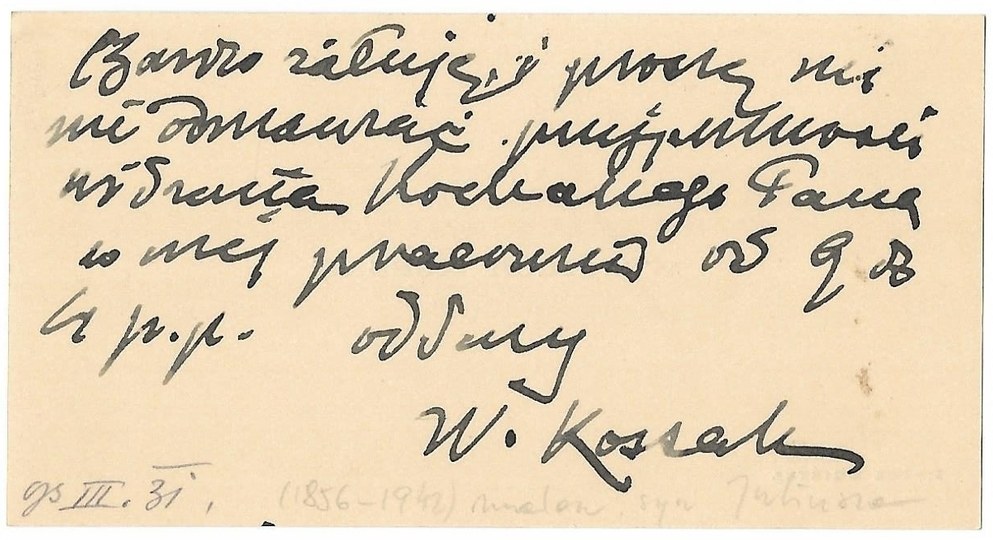 Bardzo żałuję, i proszę mi
nie odmawiać przyjemności
widzenia Kochanego Pana
w mej pracowni od 9 do
4 p.p. oddany
W. Kossak
III. 31.
(1856-1942) malarz. syn Juliusza